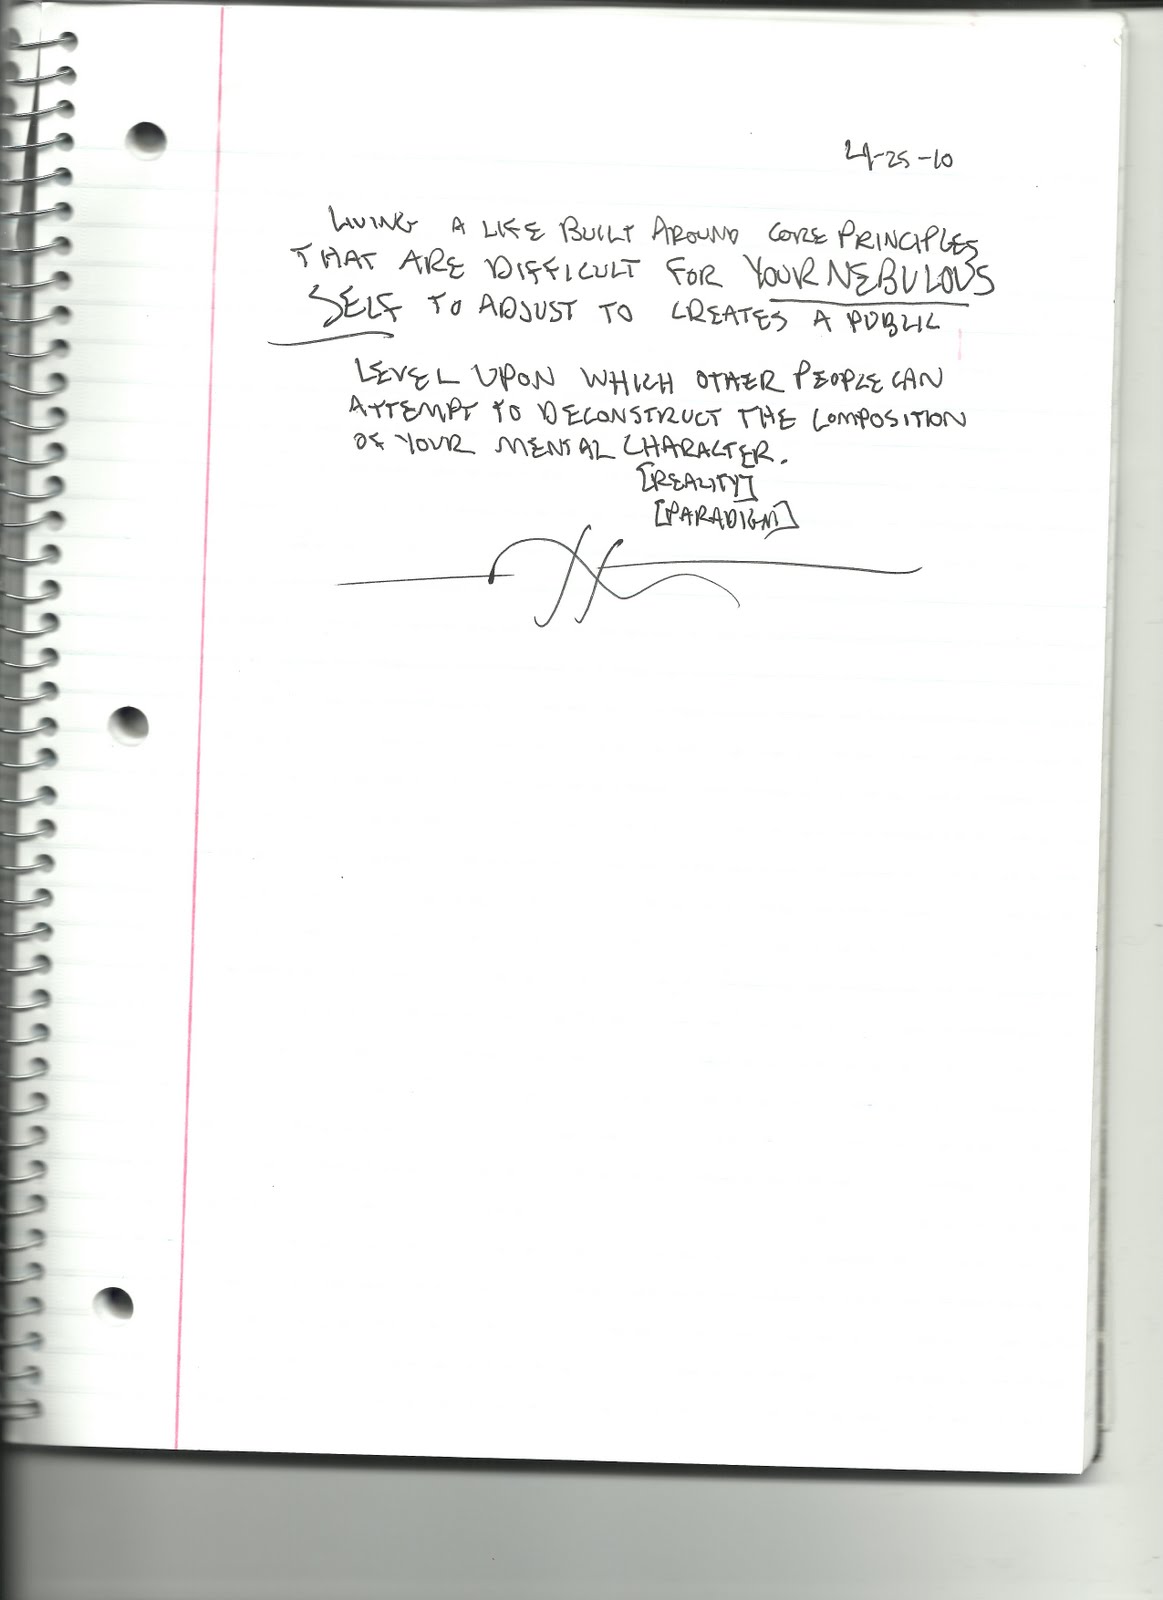 4-25-10
LIVING A LIFE BUILT AROUND CORE PRINCIPLES
THAT ARE DIFFICULT FOR YOUR NEBULOUS
SELF TO ADJUST TO CREATES A PUBLIC
LEVEL UPON WHICH OTHER PEOPLE CAN
ATTEMPT TO DECONSTRUCT THE COMPOSITION
OF YOUR MENTAL CHARACTER.
[REALITY]
[PARADIGM]